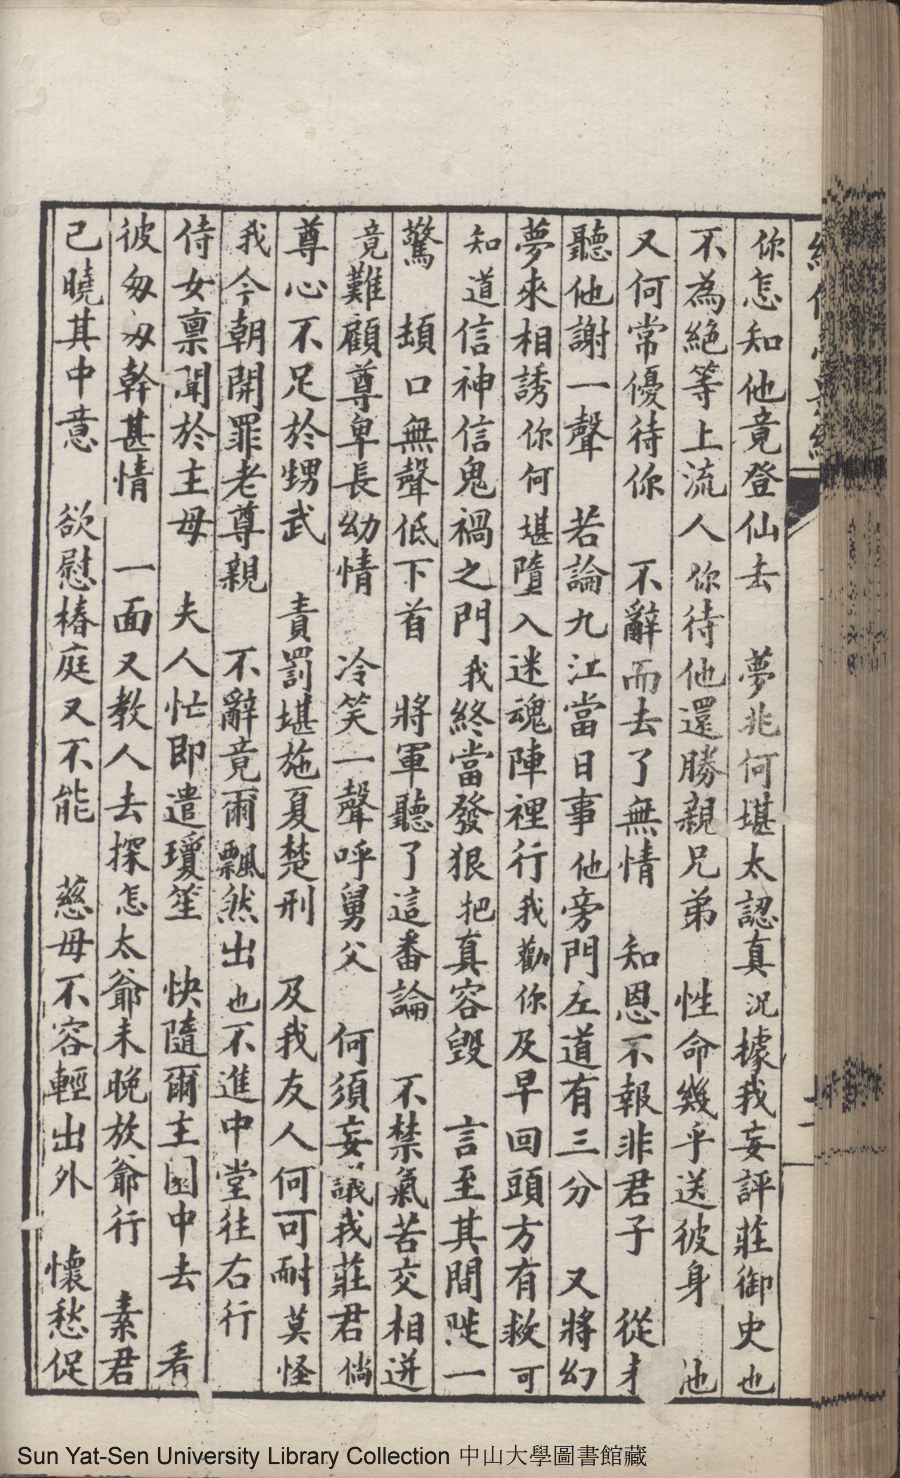 你怎知他竟登仙去　夢兆何堪太認真況據我妄評莊御史也
不為絕等上流人你待他還勝親兄弟　性命幾乎送彼身　他
又何常優待你　不辭而去了無情　知恩不報非君子　從
聽他謝一聲　若論九江當日事他旁門左道有三分　又將幻
夢來相誘你何堪墮入迷魂陣裡行我勸你及早回頭方有救可
知道信神信鬼禍之門我終當發狠把真容毀　言至其間陡一
驚　頡口無聲低下首　將軍聽了這番論　不禁氣苦交相迸
竟難顧尊卑長幼情　冷笑一聲呼舅父　何須妄議我莊君倘
尊心不足於甥武　責罰堪施夏楚刑　及我友人何可耐莫怪
我今朝開罪老尊親　不辭竟爾飄然出也不進中堂往右行
侍女禀聞於主母　夫人忙即遣瓊笙　快隨爾主園中去　看
彼匆匆幹甚情　一面又教人去探怎太爺未晚放爺行　素君
已曉其中意　欲慰椿庭又不能　慈母不容輕出外　懷愁促
Sun Yat-Sen University Library Collection 中山大學圖書館藏